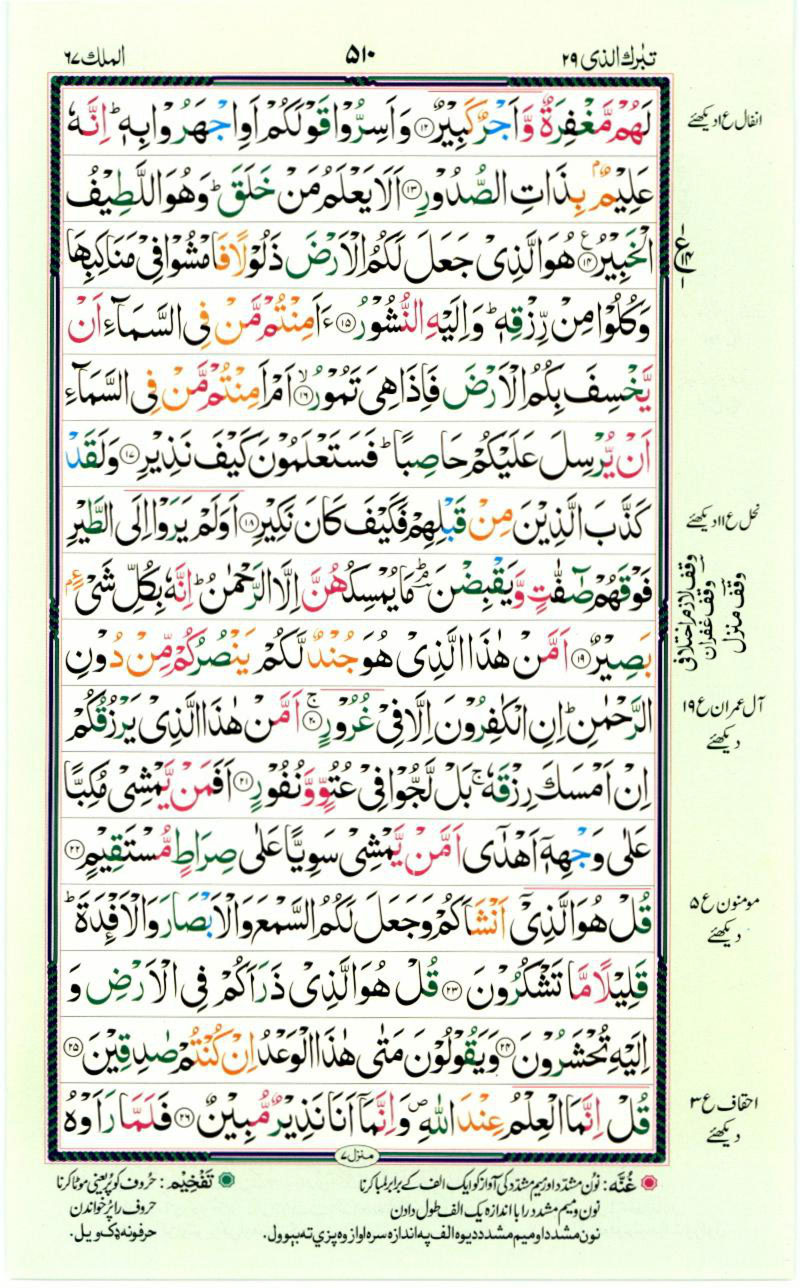 تبٰرك الذی ٢٩
٥١٠
الملك ٦٧
لَهُمْ مَّغْفِرَةٌ وَّاَجْرٌ كَبِیْرٌ ﴿١٢﴾ وَاَسِرُّوْا قَوْلَكُمْ اَوِاجْهَرُوْا بِهٖ ؕ اِنَّهٗ
انفال ع ١ دیکھئے
عَلِیْمٌۢ بِذَاتِ الصُّدُوْرِ ﴿١٣﴾ اَلَا یَعْلَمُ مَنْ خَلَقَ ؕ وَهُوَ اللَّطِیْفُ
الْخَبِیْرُ ﴿١٤﴾ هُوَ الَّذِیْ جَعَلَ لَكُمُ الْاَرْضَ ذَلُوْلًا فَامْشُوْا فِیْ مَنَاكِبِهَا
وَكُلُوْا مِنْ رِّزْقِهٖ ؕ وَاِلَیْهِ النُّشُوْرُ ﴿١٥﴾ ءَاَمِنْتُمْ مَّنْ فِی السَّمَآءِ اَنْ
یَّخْسِفَ بِكُمُ الْاَرْضَ فَاِذَا هِیَ تَمُوْرُ ﴿١٦﴾ۙ اَمْ اَمِنْتُمْ مَّنْ فِی السَّمَآءِ
اَنْ یُّرْسِلَ عَلَیْكُمْ حَاصِبًا ؕ فَسَتَعْلَمُوْنَ كَیْفَ نَذِیْرِ ﴿١٧﴾ وَلَقَدْ
كَذَّبَ الَّذِیْنَ مِنْ قَبْلِهِمْ فَكَیْفَ كَانَ نَكِیْرِ ﴿١٨﴾ اَوَلَمْ یَرَوْا اِلَی الطَّیْرِ
نحل ع ١١ دیکھئے
فَوْقَهُمْ صٰٓفّٰتٍ وَّیَقْبِضْنَ ؔۘؕ مَا یُمْسِكُهُنَّ اِلَّا الرَّحْمٰنُ ؕ اِنَّهٗ بِكُلِّ شَیْءٍۭ
وقف لازم اختلافی
وقف غفران
وقف منزل
بَصِیْرٌ ﴿١٩﴾ اَمَّنْ هٰذَا الَّذِیْ هُوَ جُنْدٌ لَّكُمْ یَنْصُرُكُمْ مِّنْ دُوْنِ
الرَّحْمٰنِ ؕ اِنِ الْكٰفِرُوْنَ اِلَّا فِیْ غُرُوْرٍ ﴿٢٠﴾ۚ اَمَّنْ هٰذَا الَّذِیْ یَرْزُقُكُمْ
آل عمران ع ١٩
دیکھئے
اِنْ اَمْسَكَ رِزْقَهٗ ۚ بَلْ لَّجُّوْا فِیْ عُتُوٍّ وَّنُفُوْرٍ ﴿٢١﴾ اَفَمَنْ یَّمْشِیْ مُكِبًّا
عَلٰی وَجْهِهٖۤ اَهْدٰۤی اَمَّنْ یَّمْشِیْ سَوِیًّا عَلٰی صِرَاطٍ مُّسْتَقِیْمٍ ﴿٢٢﴾
قُلْ هُوَ الَّذِیْۤ اَنْشَاَكُمْ وَجَعَلَ لَكُمُ السَّمْعَ وَالْاَبْصَارَ وَالْاَفْئِدَةَ ؕ
مومنون ع ٥
دیکھئے
قَلِیْلًا مَّا تَشْكُرُوْنَ ﴿٢٣﴾ قُلْ هُوَ الَّذِیْ ذَرَاَكُمْ فِی الْاَرْضِ وَ
اِلَیْهِ تُحْشَرُوْنَ ﴿٢٤﴾ وَیَقُوْلُوْنَ مَتٰی هٰذَا الْوَعْدُ اِنْ كُنْتُمْ صٰدِقِیْنَ ﴿٢٥﴾
قُلْ اِنَّمَا الْعِلْمُ عِنْدَ اللّٰهِ ۪ وَاِنَّمَاۤ اَنَا نَذِیْرٌ مُّبِیْنٌ ﴿٢٦﴾ فَلَمَّا رَاَوْهُ
احقاف ع ٣
دیکھئے
منزل ٧
غُنَّه: نون مشدد اور میم مشدد کی آواز کو ایک الف کے برابر لمبا کرنا
نون و میم مشدد را با اندازه یک الف طول دادن
نون مشدد او میم مشدد دیوه الف په اندازه سره اواز وه پزې ته بیوول.
تَفْخِیْم: حروف کو پُر یعنی موٹا کرنا
حروف را پُر خواندن
حرفونه ډک ویل.